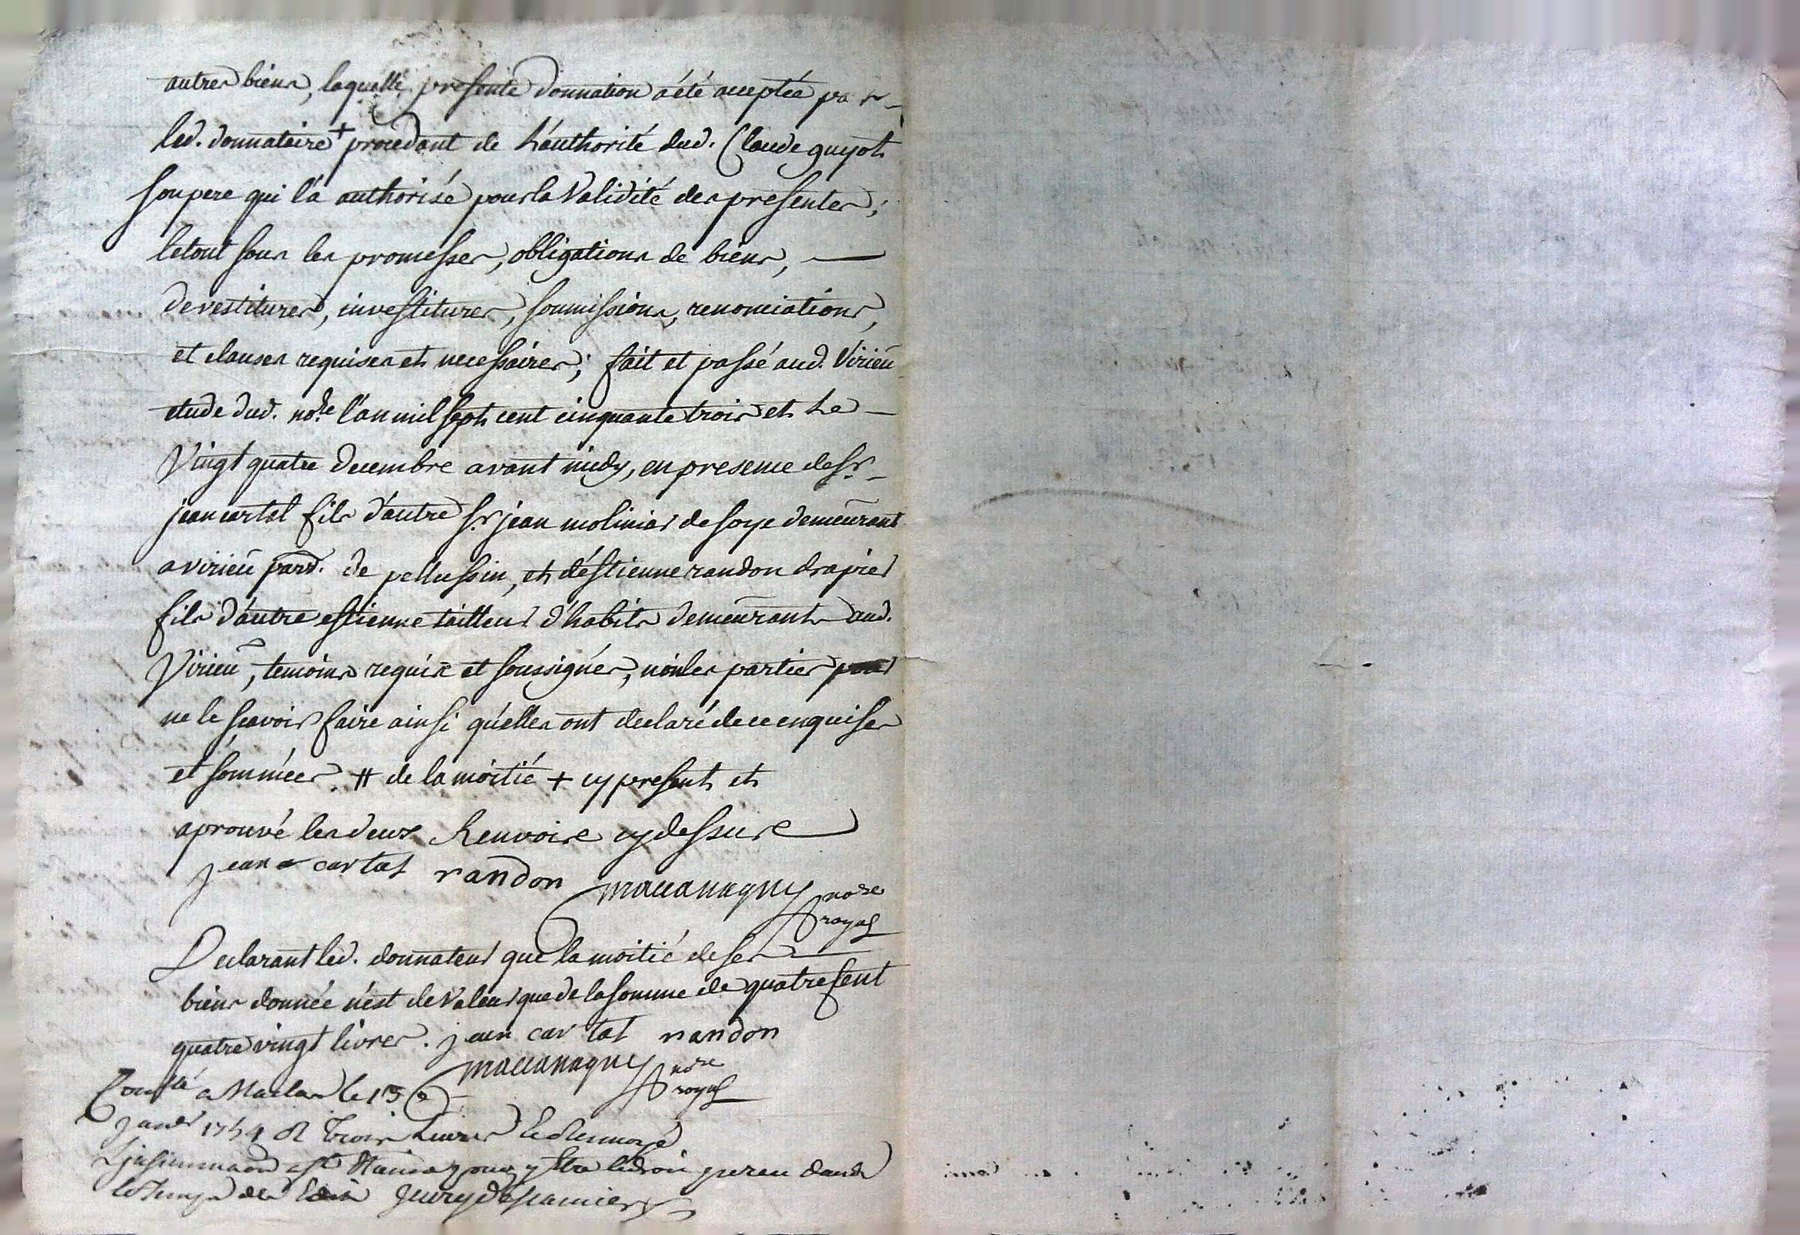 autres biens, laquelle presente donnation a été acceptée par
led. donnataire + procedant de l'authorité dud. Claude guyot
son pere qui l'a authorisé pour la validité des presentes;
le tout sous les promesses, obligations de biens,
devestitures, investitures, soumissions, renonciations,
et clauses requises et necessaires; fait et passé aud. Virieu
etude dud. no.re l'an mil sept cent cinquante trois et le
Vingt quatre decembre avant midy, en presence de Sr.
jean cartal fils d'autre Sr. jean molinier de soye demeurant
a virieu parr. de pellussin, et d'estienne randon drapier
fils d'autre estienne tailleur d'habits demeurants aud.
Virieu, temoins requis et soussignés, non les parties pour
ne le sçavoir faire ainsi qu'elles ont declaré de ce enquises
et sommées. # de la moitié + cy present et
aprouvé les deux Renvoire cy dessure
jean cartat randon maccanagny no.re
royal
Declarant led. donnateur que la moitié de ses
biens donnée n'est de valeur que de la somme de quatre sent
quatre vingt livres. jean cartat randon
maccanagny no.re
royal
a Maclas le 13
janv. 1754 R trois Livres